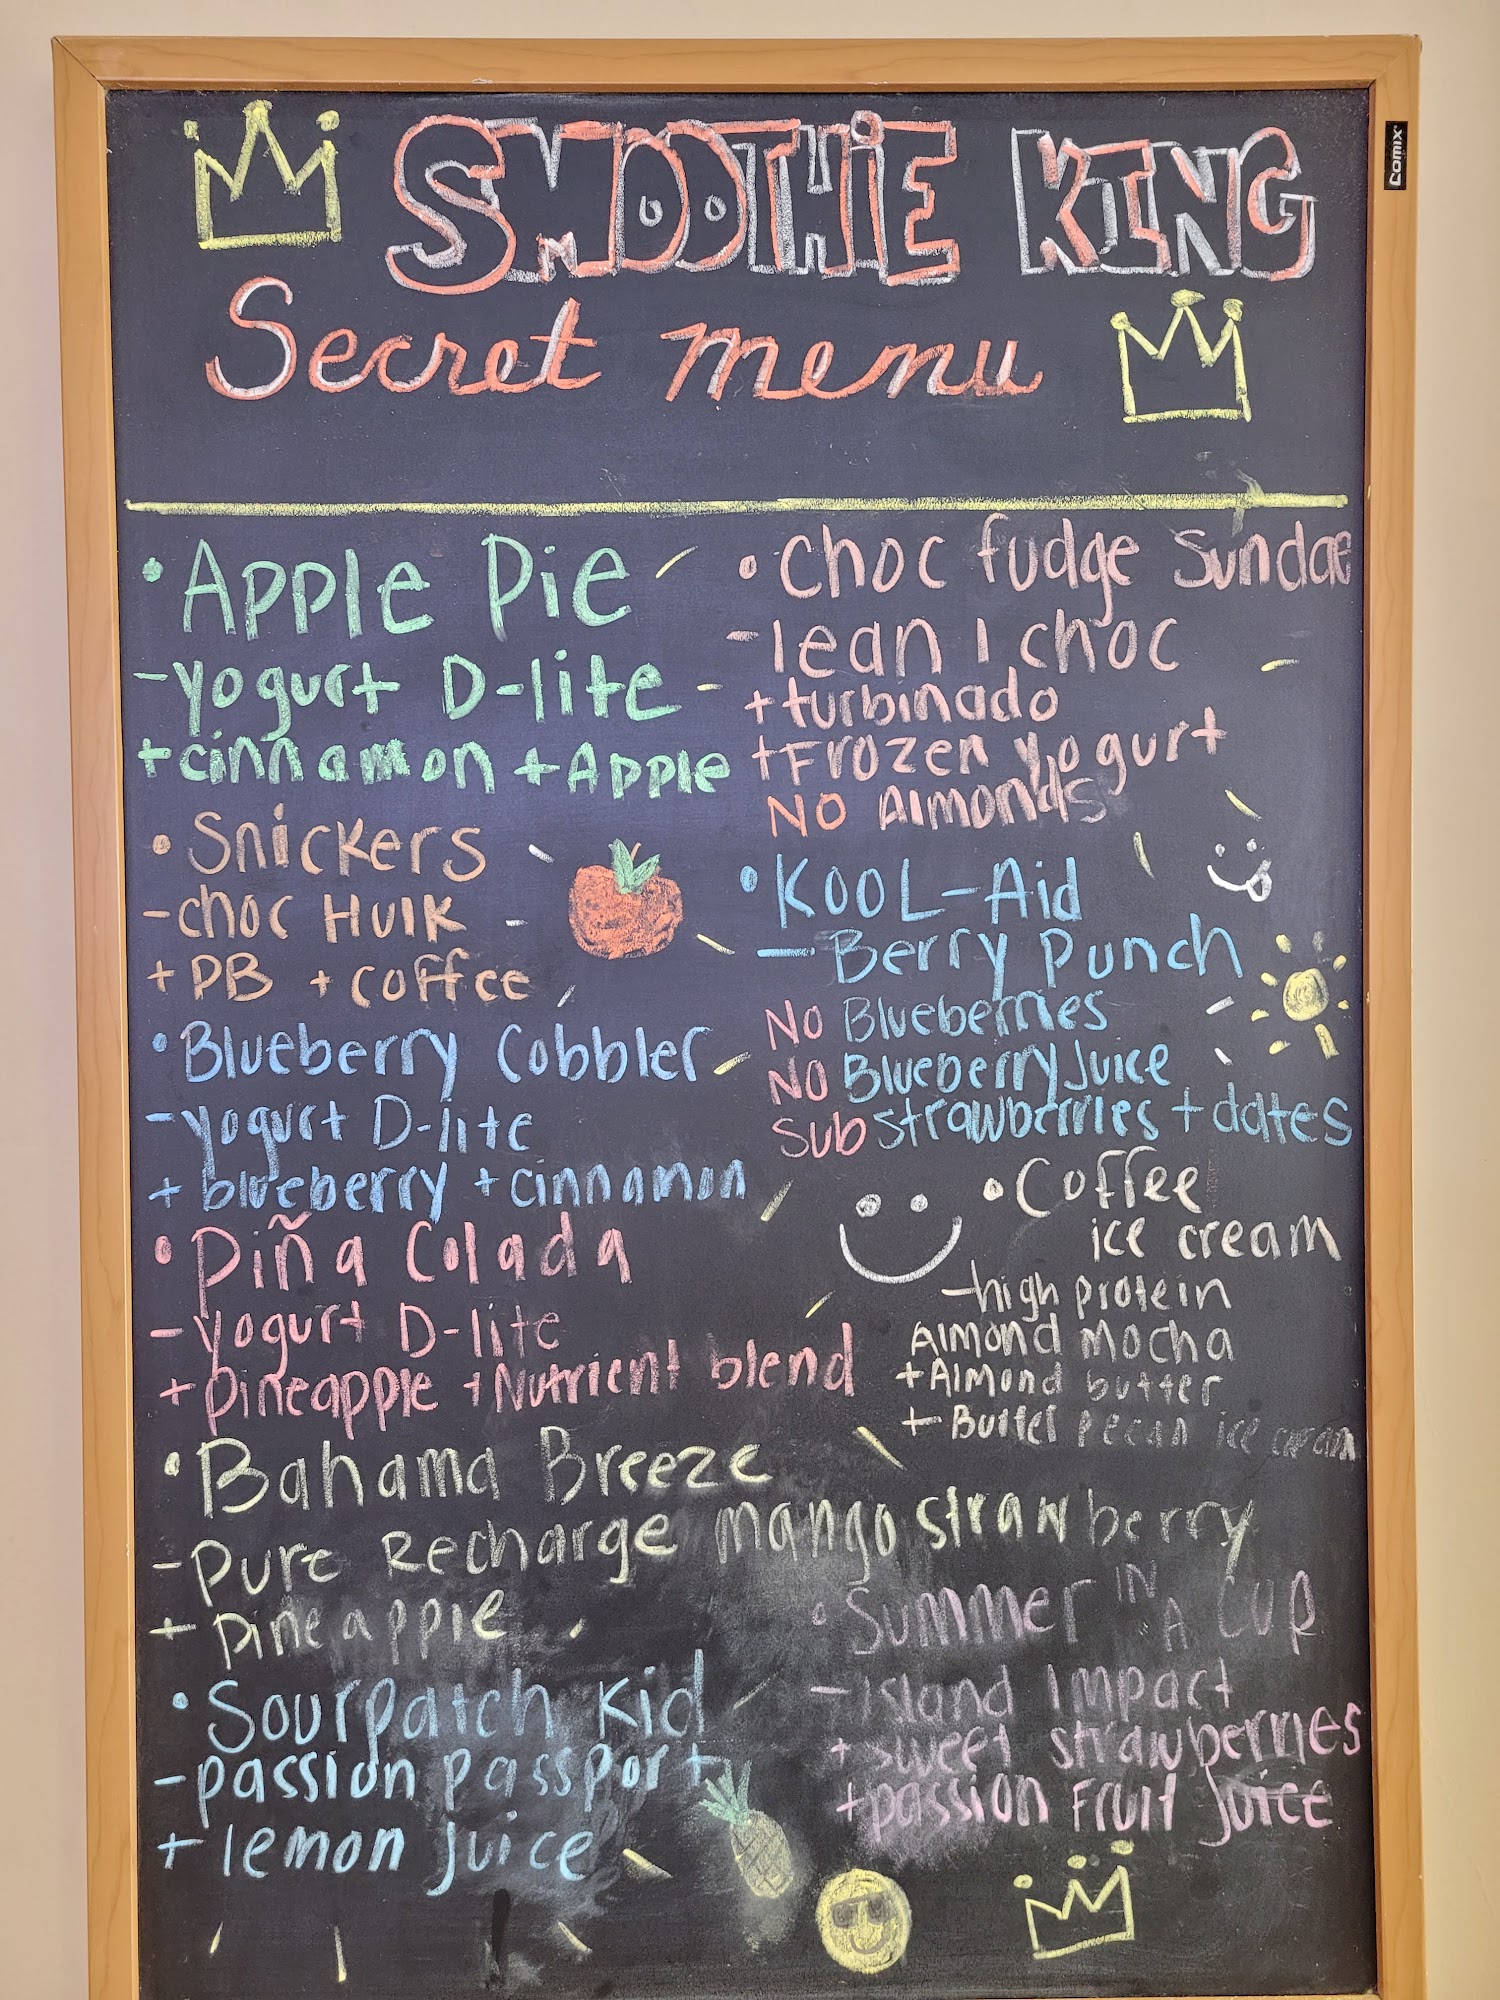 SMOOTHiE KING
Secret menu
Comix
• Apple Pie
- yogurt D-lite
+ cinnamon + Apple
• Snickers
- choc Hulk
+ PB + coffee
• Blueberry Cobbler
- yogurt D-lite
+ blueberry + cinnamon
• Piña Colada
- yogurt D-lite
+ pineapple + Nutrient blend
• Bahama Breeze
- Pure Recharge mango strawberry
+ pineapple
• Sourpatch Kid
- passion passport
+ lemon juice
• Choc fudge Sundae
- lean 1 choc
+ turbinado
+ Frozen yogurt
NO Almonds
• KOOL-Aid
- Berry Punch
No Blueberries
NO Blueberry Juice
Sub strawberries + dates
• Coffee
ice cream
- high protein
Almond mocha
+ Almond butter
+ Butter pecan ice cream
• Summer IN A CUP
- Island Impact
+ sweet strawberries
+ passion Fruit Juice